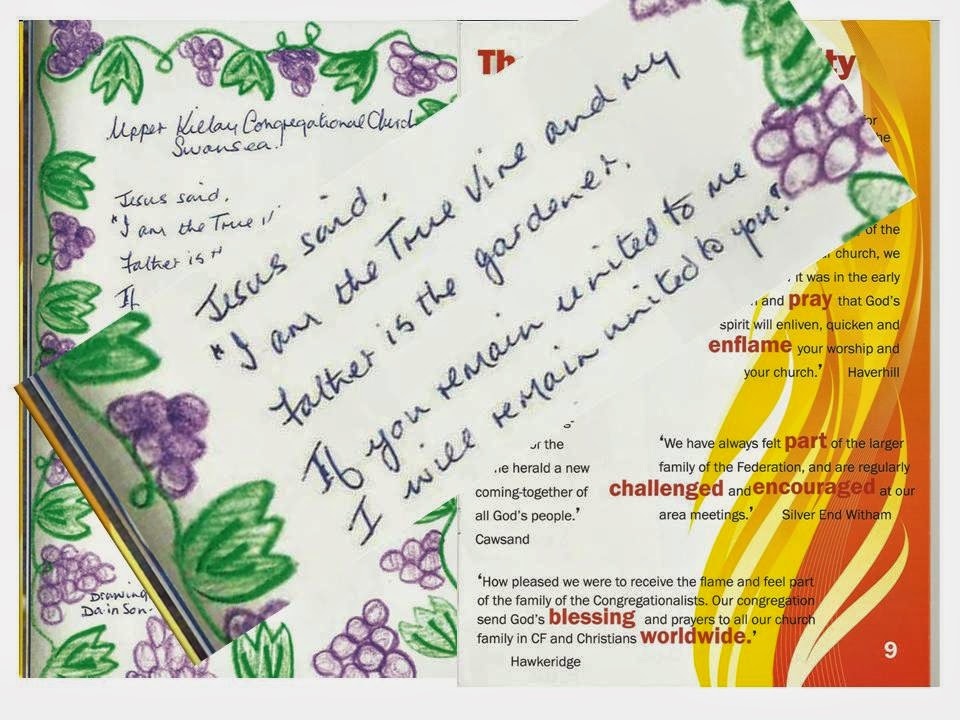 Upper Killay Congregational Church
Swansea.
Jesus said,
"I am the True
Father is
If
Jesus said,
"I am the True Vine and my
Father is the gardener.
If you remain united to me
I will remain united to you."
Drawing
of the
church, we
it was in the early
and pray that God's
spirit will enliven, quicken and
enflame your worship and
your church.' Haverhill
of the
herald a new
coming-together of
all God's people.'
Cawsand
'We have always felt part of the larger
family of the Federation, and are regularly
challenged and encouraged at our
area meetings.' Silver End Witham
'How pleased we were to receive the flame and feel part
of the family of the Congregationalists. Our congregation
send God's blessing and prayers to all our church
family in CF and Christians worldwide.'
Hawkeridge
9